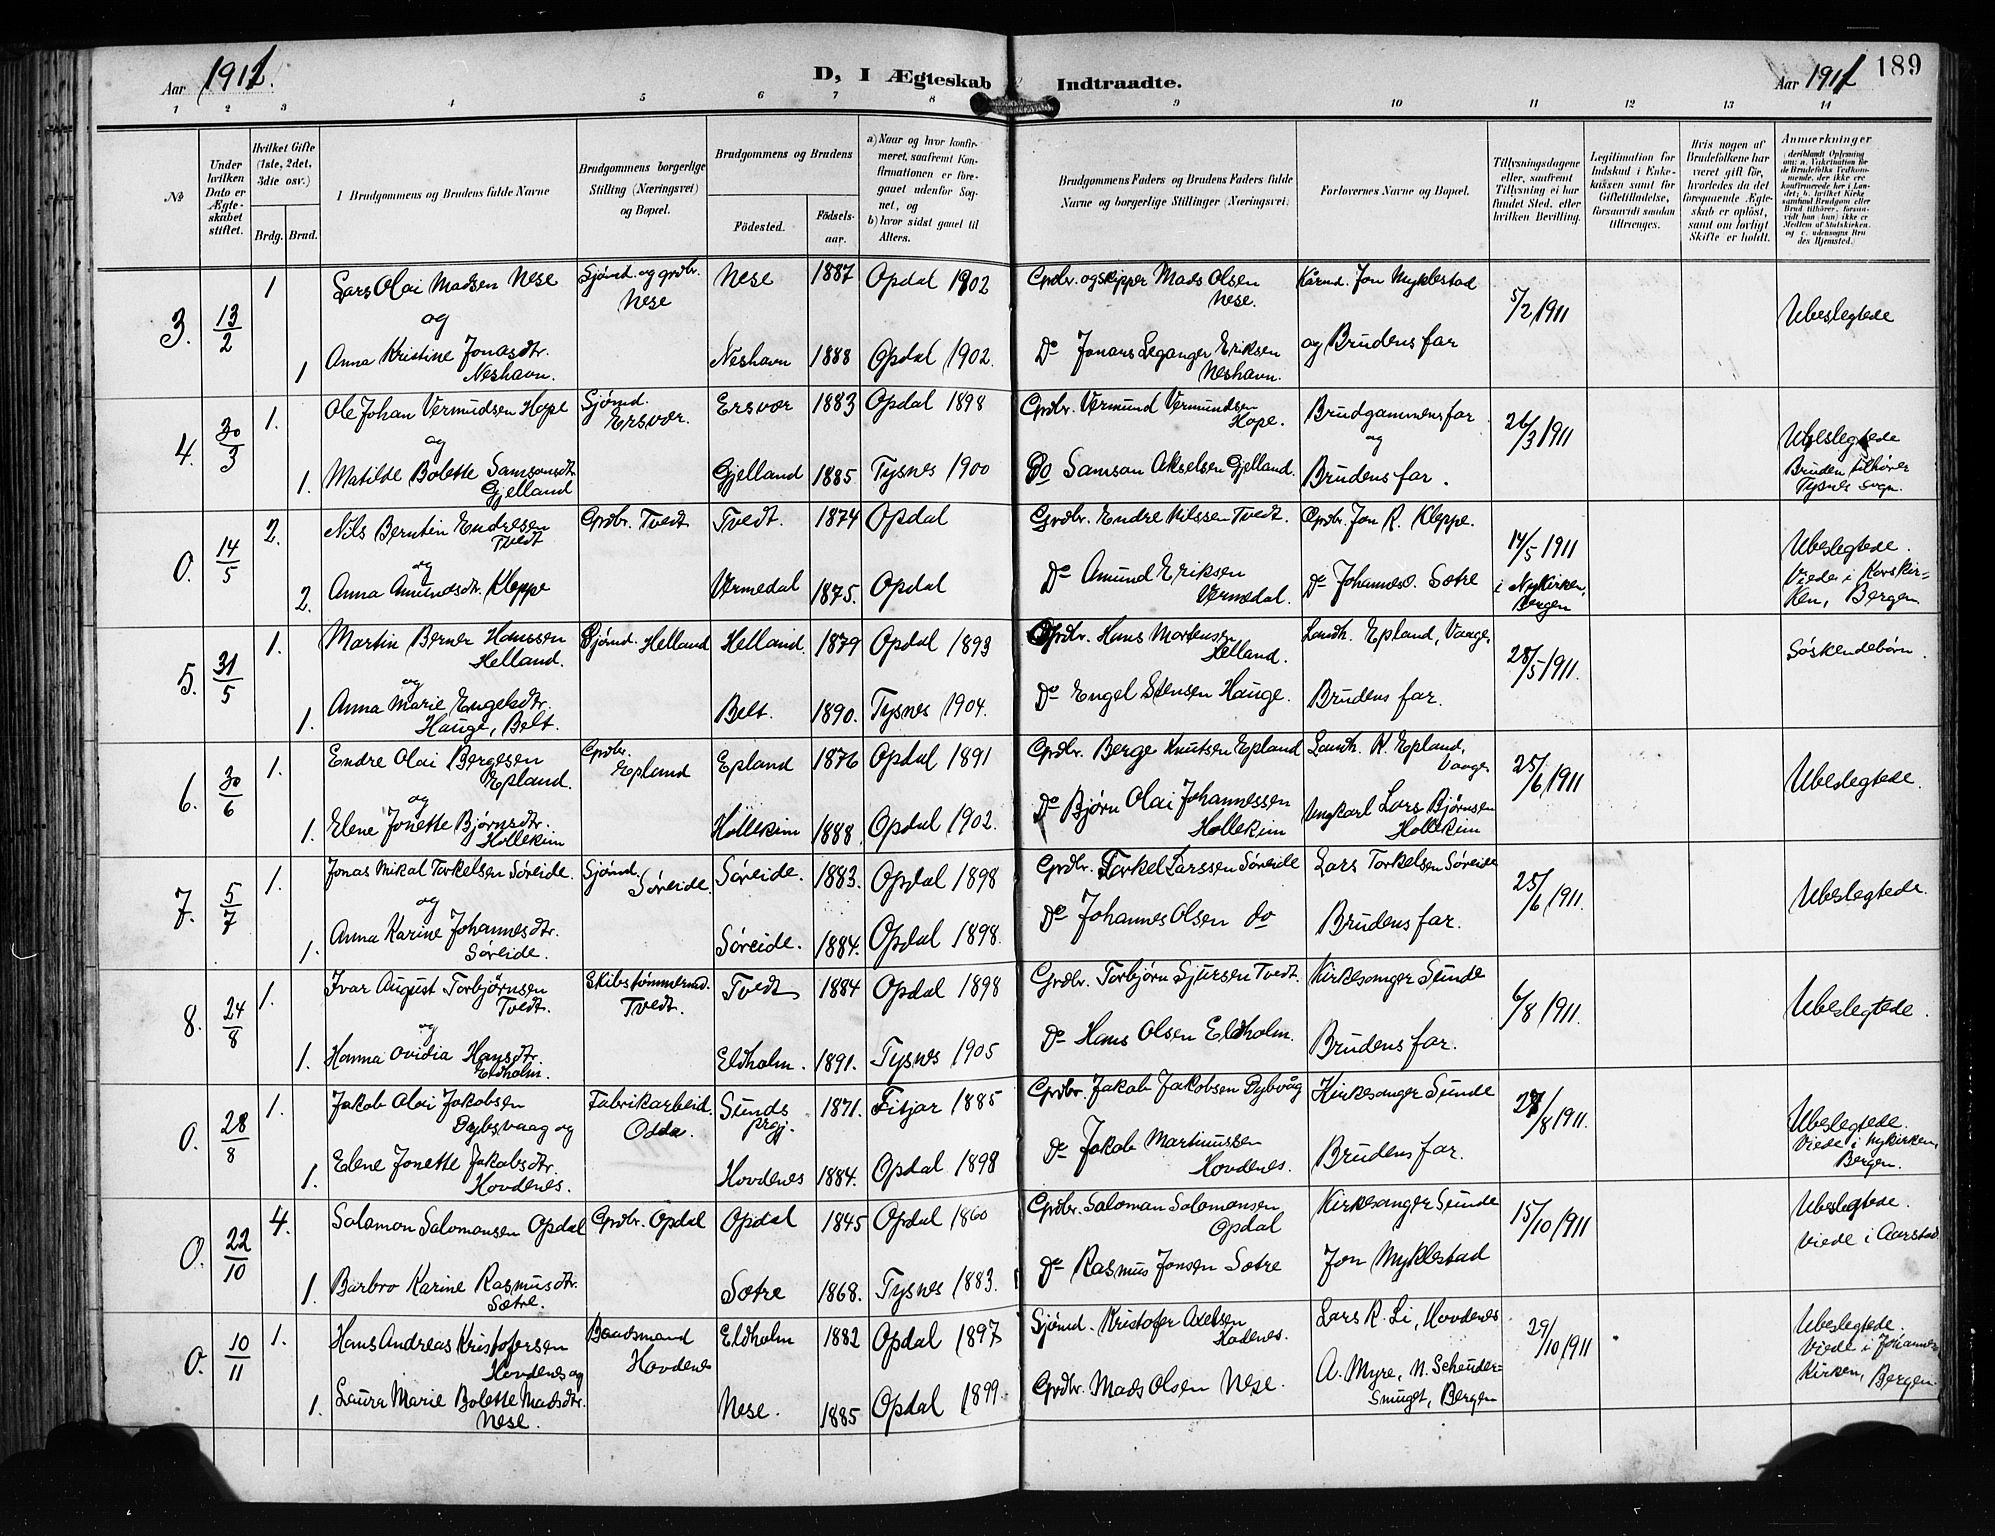 Aar 1911. D, I Ægteskab Indtraadte. Aar 1911 189
1 2 3 4 5 6 7 8 9 10 11 12 13 14
No
Under hvilken Dato er Ægteskabet stiftet.
Hvilket Gifte (1ste, 2det, 3die osv.)
Brdg. Brud.
I Brudgommens og Brudens fulde Navne
Brudgommens borgerlige Stilling (Næringsvei) og Bopæl.
Brudgommens og Brudens
Fødested. Fødselsaar.
a) Naar og hvor konfirmeret, saafremt Konfirmationen er foregaaet udenfor Sognet, og
b) hvor sidst gaaet til Alters.
Brudgommens Faders og Brudens Faders fulde Navne og borgerlige Stillinger (Næringsvei)
Forlovernes Navne og Bopæl.
Tillysningsdagene eller, saafremt Tillysning ei har fundet Sted, efter hvilken Bevilling.
Legitimation for Indskud i Enkekassen samt for Giftetilladelse, forsaavidt saadan tiltrænges.
Hvis nogen af Brudefolkene har været gift før, hvorledes da det foregaaende Ægteskab er opløst, samt om lovligt Skifte er holdt.
Anmerkninger
3. 13/2 1 Lars Olai Madsen Nese Sjømd. og grdbr. Nese Nese 1887 Opdal 1902 Grdbr. og skipper Mads Olsen Nese. Kårmd. Jon Myklestad 5/2 1911 Ubeslegtede
og
1 Anna Kristine Jonasdtr. Neshavn. Neshavn 1888 Opdal 1902. Do Jonars Leganger Eriksen Neshavn. og Brudens far
4. 30/3 1. Ole Johan Vermudsen Hope Sjømd. Ersvær. Ersvær 1883 Opdal 1898 Grdbr. Vermund Vermundsen Hope. Brudgammens far og 26/3 1911 Ubeslegtede
og
1. Matilde Bolette Samsonsdtr Gjelland Gjelland 1885. Tysnes 1900 Do Samson Akselsen Gjelland. Brudens far. Bruden tilhører Tysnes sogn.
0. 14/5 2. Nils Berntin Endresen Tvedt Grdbr. Tvedt Tvedt. 1874 Opdal Grdbr. Endre Nilssen Tvedt. Grdbr. Jon R. Kleppe. 14/5 1911 i Nykirken, Bergen Ubeslegtede.
og
2. Anna Amundsdtr. Kleppe Vermedal 1875. Opdal Do Amund Eriksen Vermedal. Do Johannes O. Sætre Viede i Korskirken, Bergen
5. 31/5 1. Martin Berner Hanssen Helland. Sjømd. Helland Helland. 1879 Opdal 1893 Grdbr. Hans Mortensen Helland. Landh. Epland, Vaage. 28/5 1911. Søskendebørn.
og
1. Anna Marie Engelsdtr. Hauge, Belt. Belt. 1890. Tysnes 1904. Do Engel Stensen Hauge. Brudens far.
6. 30/6 1. Endre Olai Bergesen Epland. Grdbr. Epland Epland 1876 Opdal 1891 Grdbr. Berge Knutsen Epland Landh. K. Epland, Vaage 25/6 1911 Ubeslegtede.
og
1. Elene Jonette Bjørnsdtr. Hollekim Hollekim 1888. Opdal 1902. Do Bjørn Olai Johannessen Hollekim Ungkarl Lars Bjørnsen Hollekim
7. 5/7 1. Jonas Mikal Torkelsen Søreide. Sjømd. Søreide. Søreide. 1883. Opdal 1898 Grdbr. Torkel Larssen Søreide Lars Torkelsen Søreide 25/6 1911. Ubeslegtede.
og
1. Anna Karine Johannesdtr. Søreide. Søreide. 1884. Opdal 1898. Do Johannes Olsen do Brudens far.
8. 24/8 1. Ivar August Torbjørnsen Tvedt. Skibstømmermd. Tvedt. Tvedt 1884 Opdal 1898 Grdbr. Torbjørn Sjursen Tvedt. Kirkesanger Sunde 6/8 1911. Ubeslegtede.
og
1. Hanna Ovidia Hansdtr. Eldholm. Eldholm. 1891. Tysnes 1905 Do Hans Olsen Eldholm. Brudens far.
0. 28/8 1. Jakob Olai Jakobsen Dybsvaag og Fabrikarbeid. Odda. Sunds prgj. 1871. Fitjar 1885 Grdbr. Jakob Jakobsen Dybvåg Kirkesanger Sunde 27/8 1911. Ubeslegtede.
1. Elene Jonette Jakobsdtr. Hovdenes. Hovdenes 1884. Opdal 1898 Do Jakob Martinussen Hovdenes. Brudens far. Viede i Nykirken, Bergen.
0. 22/10 4. Salomon Salomonsen Opdal Grdbr. Opdal Opdal 1845 Opdal 1860 Grdbr. Saloman Salomonsen Opdal Kirkesanger Sunde 15/10 1911 Ubeslegtede.
1. Barbro Karine Rasmusdtr. Sætre. Sætre 1868. Tysnes 1883. Do Rasmus Jonsen Sætre Jon Myklestad Viede i Aarstad.
0. 10/11 1. Hans Andreas Kristofersen Hovdenes og Baadsmand Hovdenes Eldholm 1882 Opdal 1897 Sjømd. Kristofer Axelsen Hodenes. Lars R. Li, Hovdenes 29/10 1911 Ubeslegtede.
1. Laura Marie Bolette Madsdtr. Nese. Nese. 1885 Opdal 1899. Grdbr. Mads Olsen Nese. A. Myre, N. Scheudersmuget, Bergen Viede i Johanneskirken, Bergen.